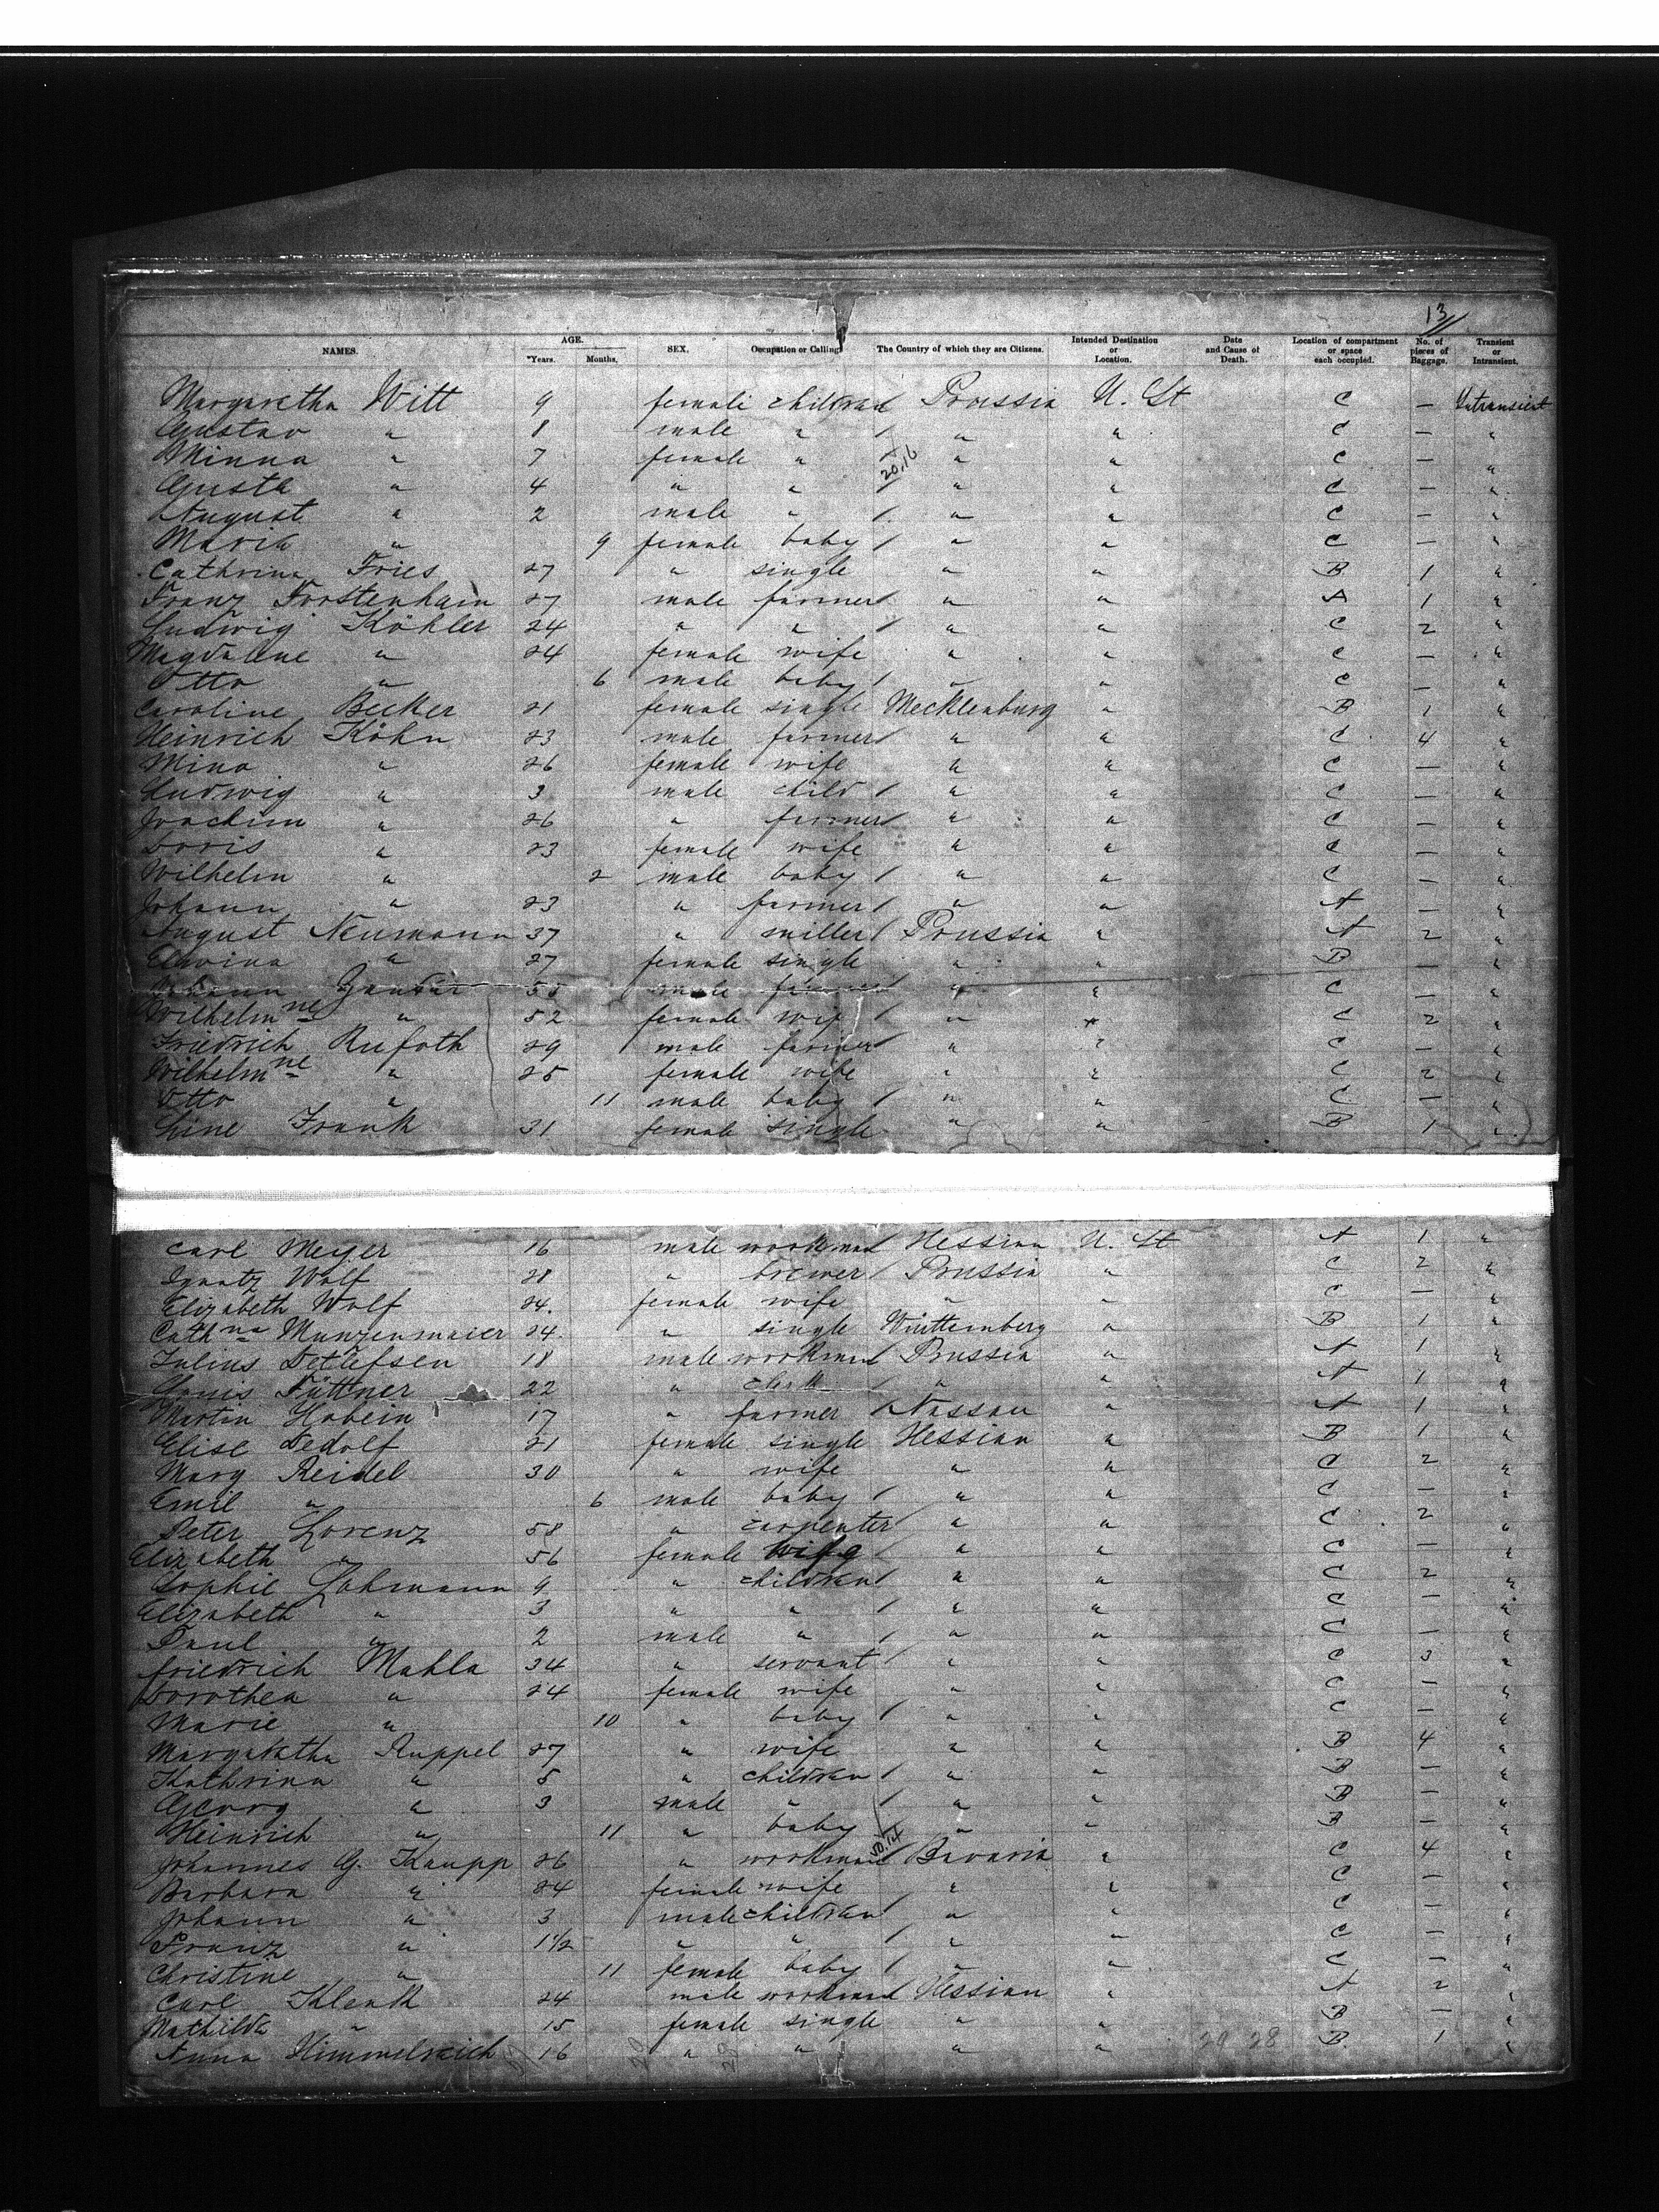 13
NAMES. AGE. Years. Months. SEX. Occupation or Calling. The Country of which they are Citizens. Intended Destination or Location. Date and Cause of Death. Location of compartment or space each occupied. No. of pieces of Baggage. Transient or Intransient.
Margaretha Witt 9 female children Prussia U. St C — Intransient
Gustav " 8 male " / " " C — "
Minna " 7 female " 20,16 " " C — "
Gusta " 4 " " / " " C — "
August " 2 male " / " " C — "
Maria " 9 female baby / " " C — "
Cathrina Fries 27 " single " " B 1 "
Franz Forstenhain 27 male farmer / " " A 1 "
Ludwig Köhler 24 " " / " " C 2 "
Magdaline " 24 female wife " " C — "
Otto " 6 male baby / " " C — "
Caroline Becker 21 female single Mecklenburg " B 1 "
Heinrich Köhn 23 male farmer / " " C 4 "
Mina " 26 female wife " " C — "
Ludwig " 3 male child / " " C — "
Joachim " 26 " farmer / " " C — "
Doris " 23 female wife " " C — "
Wilhelm " 2 male baby / " " C — "
Johann " 23 " farmer / " " A — "
August Neumann 37 " miller / Prussia " A 2 "
Elwina " 27 female single " " B — "
Johann 55 male farmer " " C — "
Wilhelmne " 52 female wife " " C 2 "
Friedrich Rufoth 29 male farmer " " C — "
Wilhelmne " 25 female wife " " C 2 "
Otto " 11 male baby / " " C — "
Line Frank 31 female single " " B 1 "
Carl Meyer 16 male workman Hessian U. St A 1 "
Ignatz Wolf 28 " brewer / Prussia " C 2 "
Elizabeth Wolf 24. female wife " " C — "
Cathna Munzenmaier 24. " single Württemberg " B 1 "
Julius Detlefsen 18 male workman Prussia " A 1 "
Louis Füttner 22 " clerk " " A 1 "
Martin Habein 17 " farmer / Nassau " A 1 "
Elise Dedolf 21 female single Hessian " B 1 "
Marg Reidel 30 " wife " " C 2 "
Emil " 6 male baby / " " C — "
Peter Lorenz 58 " carpenter " " C 2 "
Elizabeth " 56 female wife " " C — "
Sophie Lohmann 9 " children / " " C 2 "
Elizabeth " 3 " " / " " C — "
Paul " 2 male " / " " C — "
Friedrich Mahla 34 " servant / " " C 3 "
Dorothea " 24 female wife " " C — "
Marie " 10 " baby / " " C — "
Margaretha Ruppel 27 " wife " " B 4 "
Kathrina " 5 " children / " " B — "
Georg " 3 male " / " " B — "
Heinrich " 11 " baby " " B — "
Johannes G. Kaupp 26 " workman Bavaria " C 4 "
Barbara " 24 female wife " " C — "
Johann " 3 male children " " C — "
Franz " 1 1/2 " " / " " C — "
Christine " 11 female baby / " " C — "
Carl Klenk 24 male workman Hessian " A 2 "
Mathilda " 15 female single " " B — "
Anna Himmelreich 16 " " " " 29 28 B. 1 "